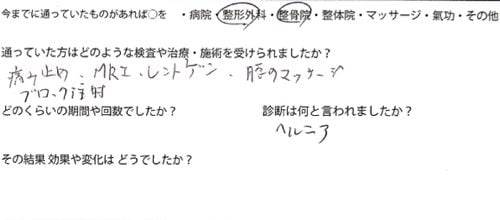 今までに通っていたものがあれば○を ・病院・整形外科・整骨院・整体院・マッサージ・氣功・その他
通っていた方はどのような検査や治療・施術を受けられましたか？
痛み止め、MRI、レントゲン、腰のマッサージ
ブロック注射
どのくらいの期間や回数でしたか？ 診断は何と言われましたか？
ヘルニア
その結果 効果や変化は どうでしたか？